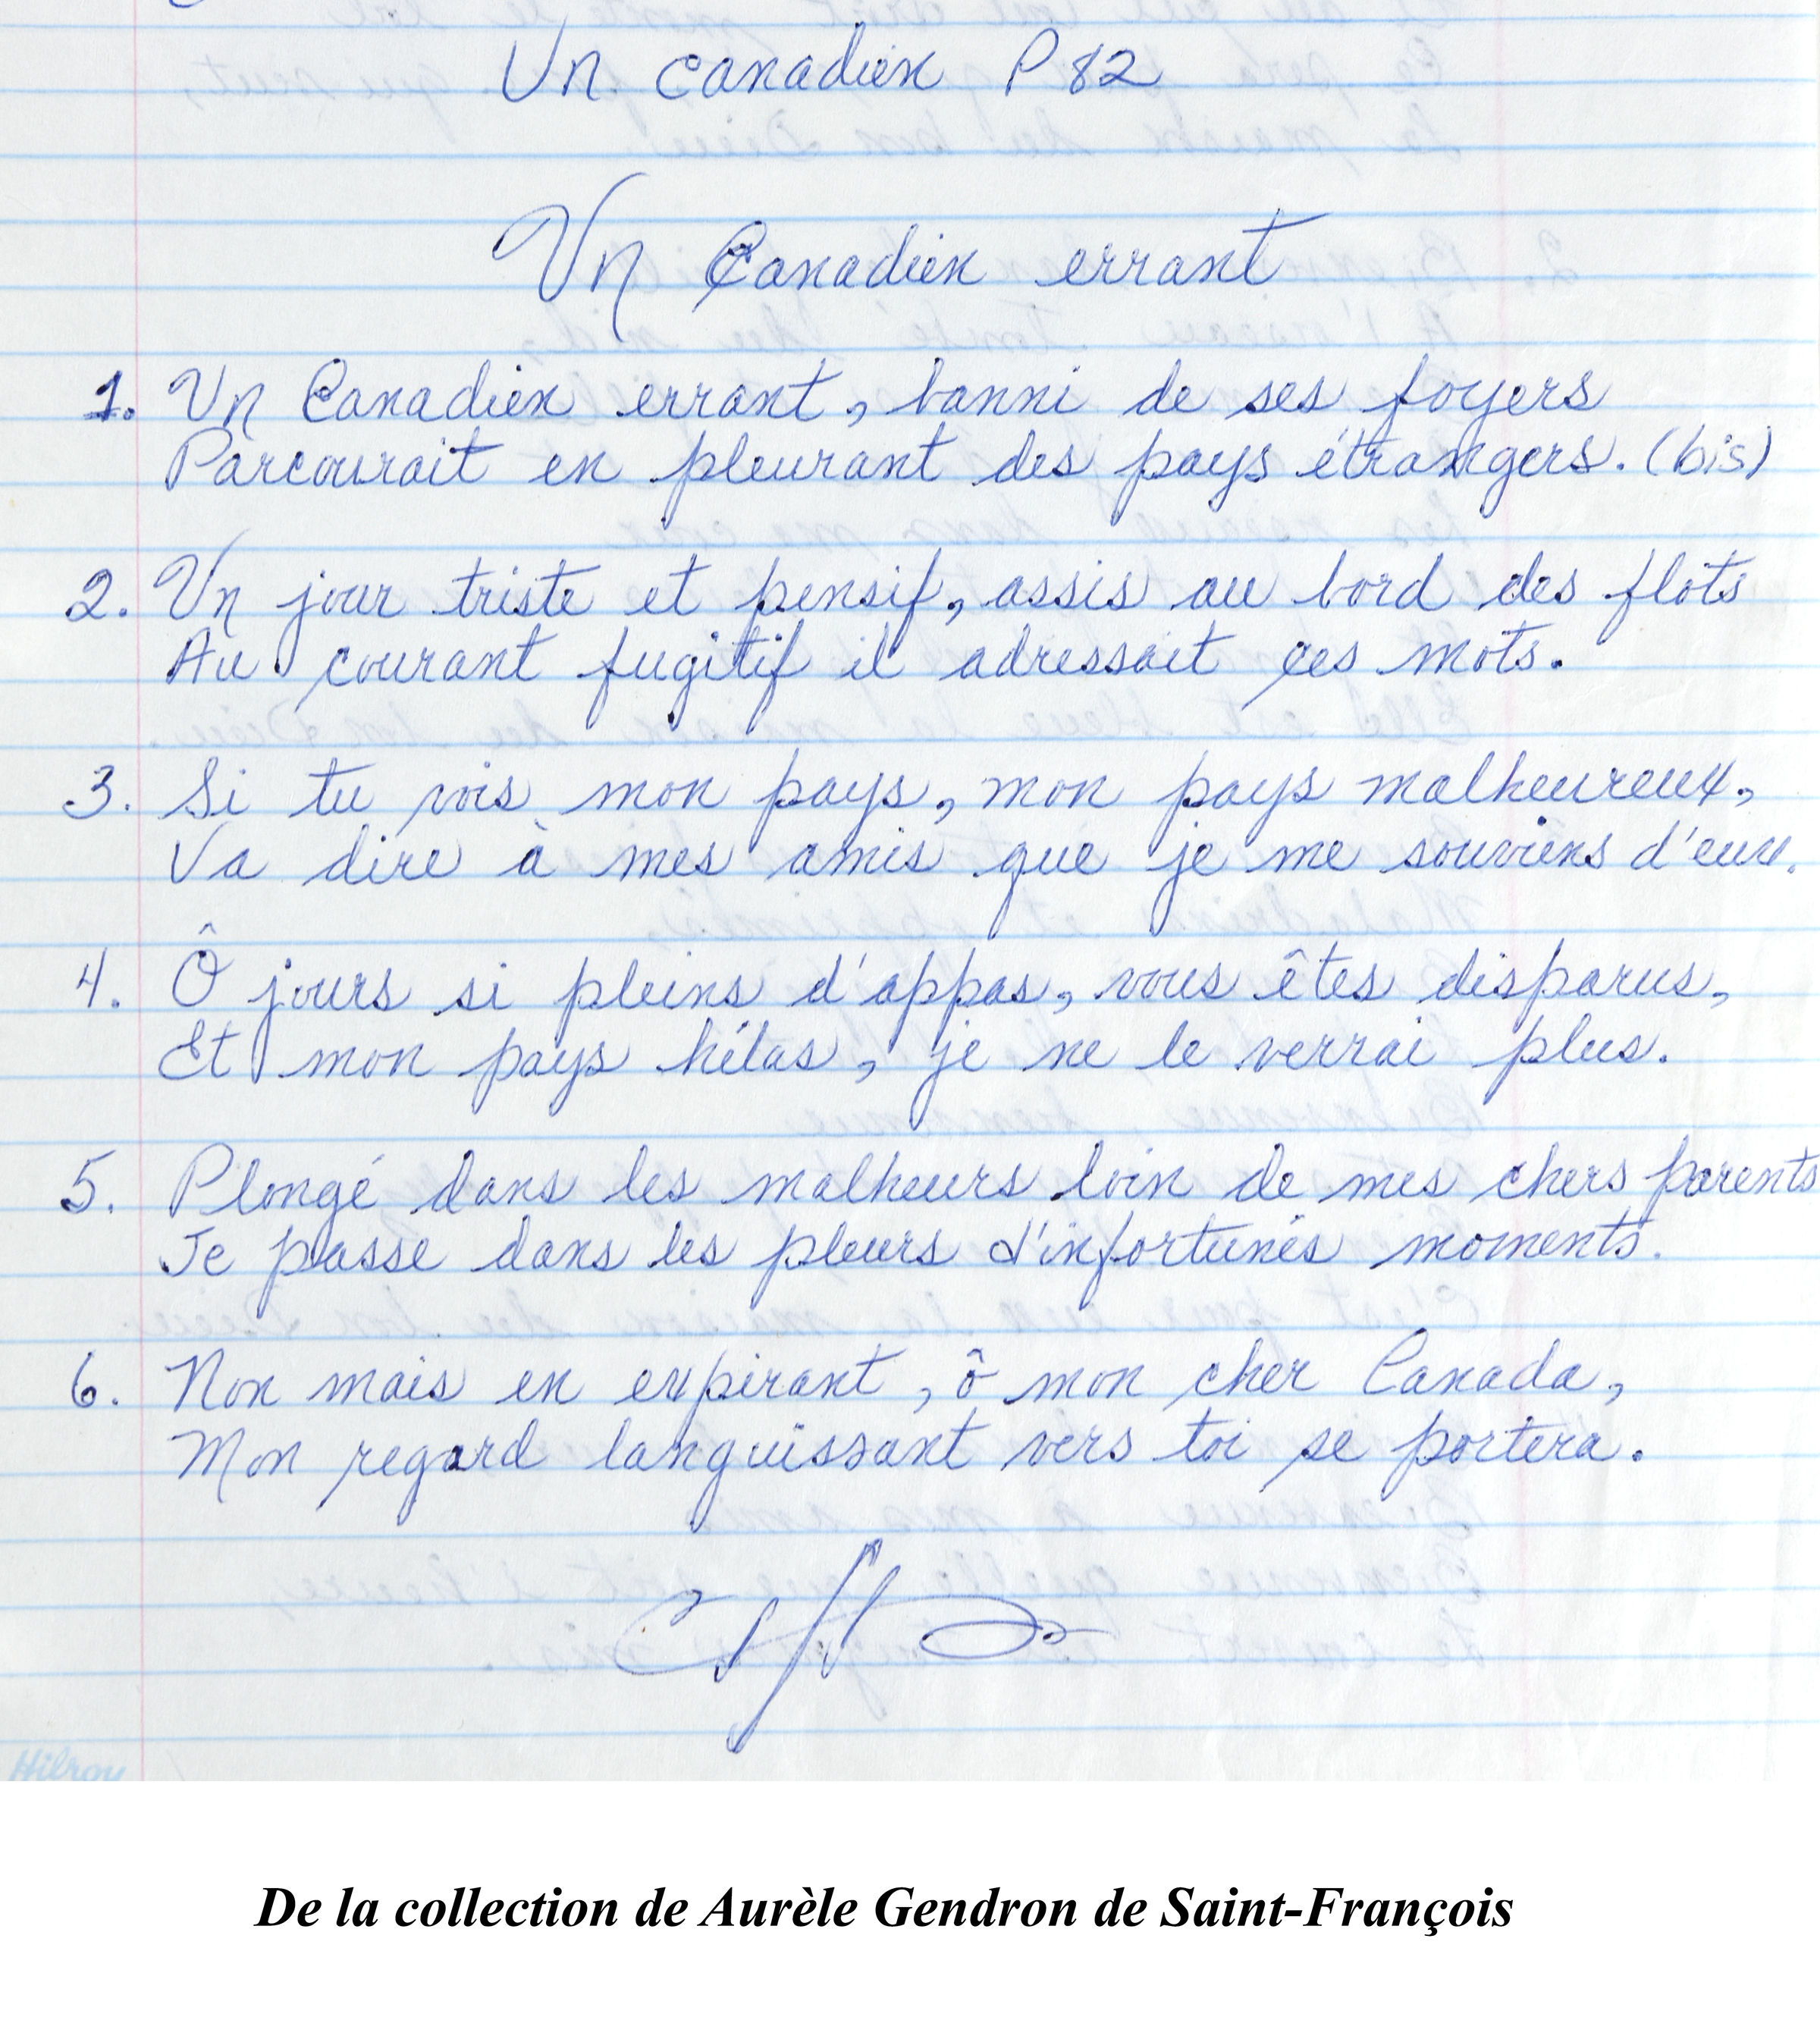 Un canadien P 82
Un Canadien errant
1. Un Canadien errant, banni de ses foyers
Parcourait en pleurant des pays étrangers. (bis)
2. Un jour triste et pensif, assis au bord des flots
Au courant fugitif il adressait ces mots.
3. Si tu vois mon pays, mon pays malheureux,
Va dire à mes amis que je me souviens d'eux.
4. Ô jours si pleins d'appas, vous êtes disparus,
Et mon pays hélas, je ne le verrai plus.
5. Plongé dans les malheurs loin de mes chers parents
Je passe dans les pleurs d'infortunés moments.
6. Non mais en expirant, ô mon cher Canada,
Mon regard languissant vers toi se portera.
Hilroy
De la collection de Aurèle Gendron de Saint-François